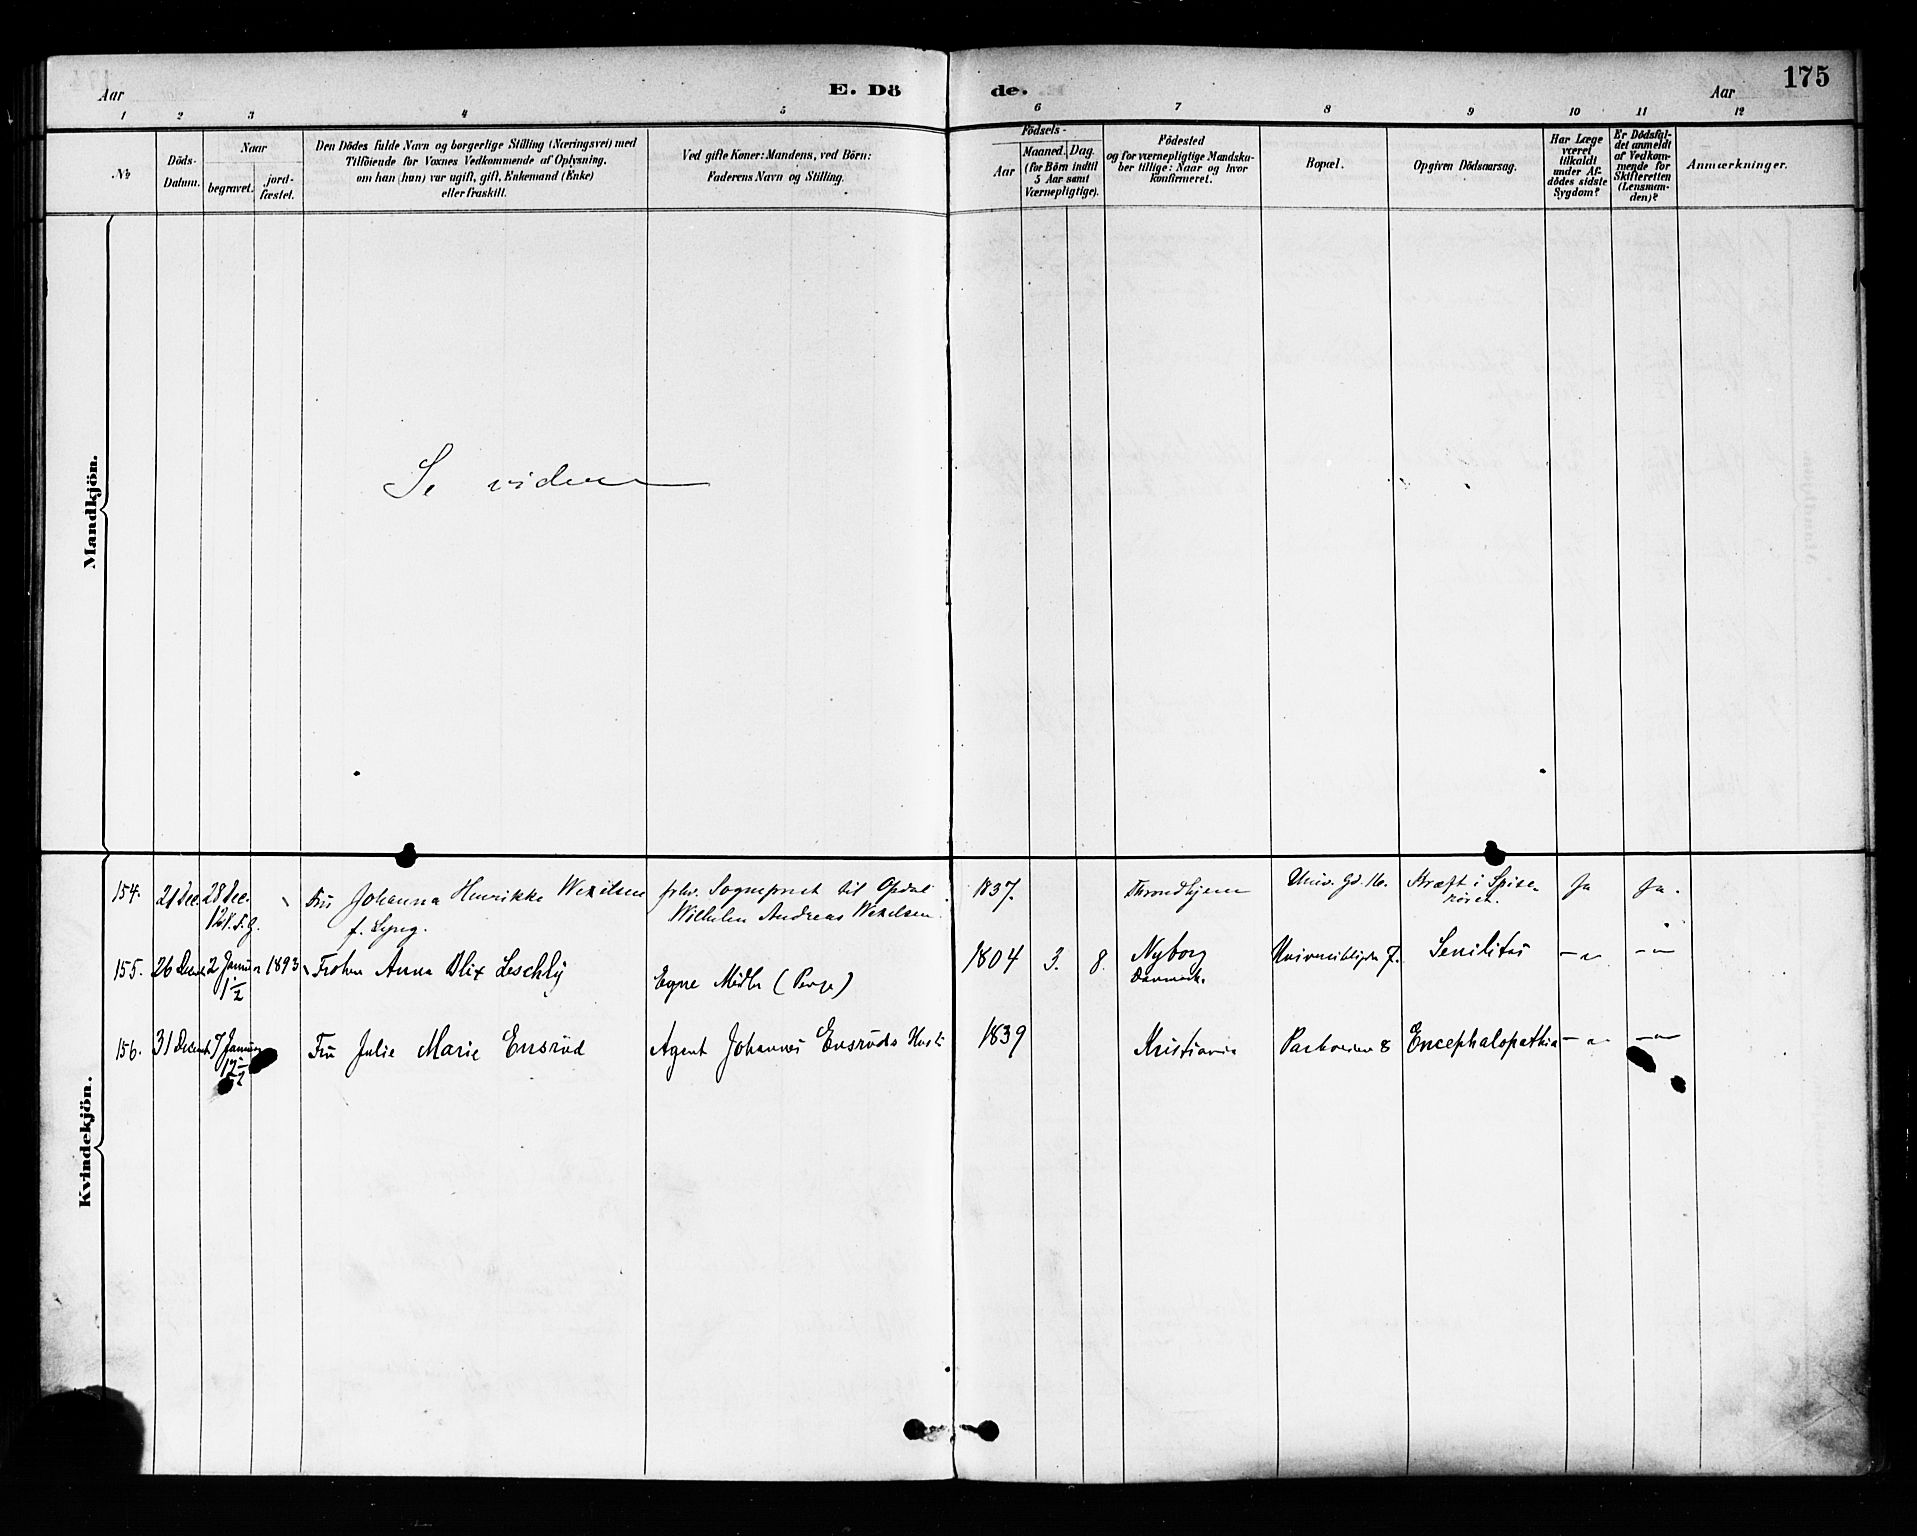 175
Aar
E. Dö
de.
Aar
1 2 3 4 5 6 7 8 9 10 11 12
№
Döds-
Datum.
Naar
begravet.
jord-
fæstet.
Den Dödes fulde Navn og borgerlige Stilling (Næringsvei) med
Tilföiende for Voxnes Vedkommende af Oplysning,
om han (hun) var ugift, gift, Enkemand (Enke)
eller fraskilt.
Ved gifte Koner: Mandens, ved Börn:
Faderens Navn og Stilling.
Födsels-
Aar
Maaned.
Dag.
(for Börn indtil
5 Aar samt
Værnepligtige).
Födested
og for værnepligtige Mandska-
ber tillige: Naar og hvor
konfirmeret.
Bopæl.
Opgiven Dödsaarsag.
Har Læge
været
tilkaldt
under Af-
dödes sidste
Sygdom?
Er Dödsfal-
det anmeldt
af Vedkom-
mende for
Skifteretten
(Lensman-
den)?
Anmærkninger.
Mandkjön.
Se videre
Kvindekjön.
154. 21 Dec. 28 Dec. Fru Johanna Henrikke Wexelsen fhv. Sogneprest til Opdal 1837. Throndhjem Univ. Gd. 16. Kræft i Spise- Ja Ja.
f. Lyng. Wilhelm Andreas Wexelsen. röret.
155. 26 Decemb 2 Januar 1893 Frøken Anna Blix Leschly Egne Midler (Penge) 1804 3. 8. Nyborg 7. Senilitas — " — — " —
1 1/2 Danmark.
156. 31 Decemb 7 Januar Fru Julie Marie Ensrud Agent Johannes Ensruds Hustr 1839 Kristiania Parkveien 8 Encephalopathia — " — — " —
12 1/2